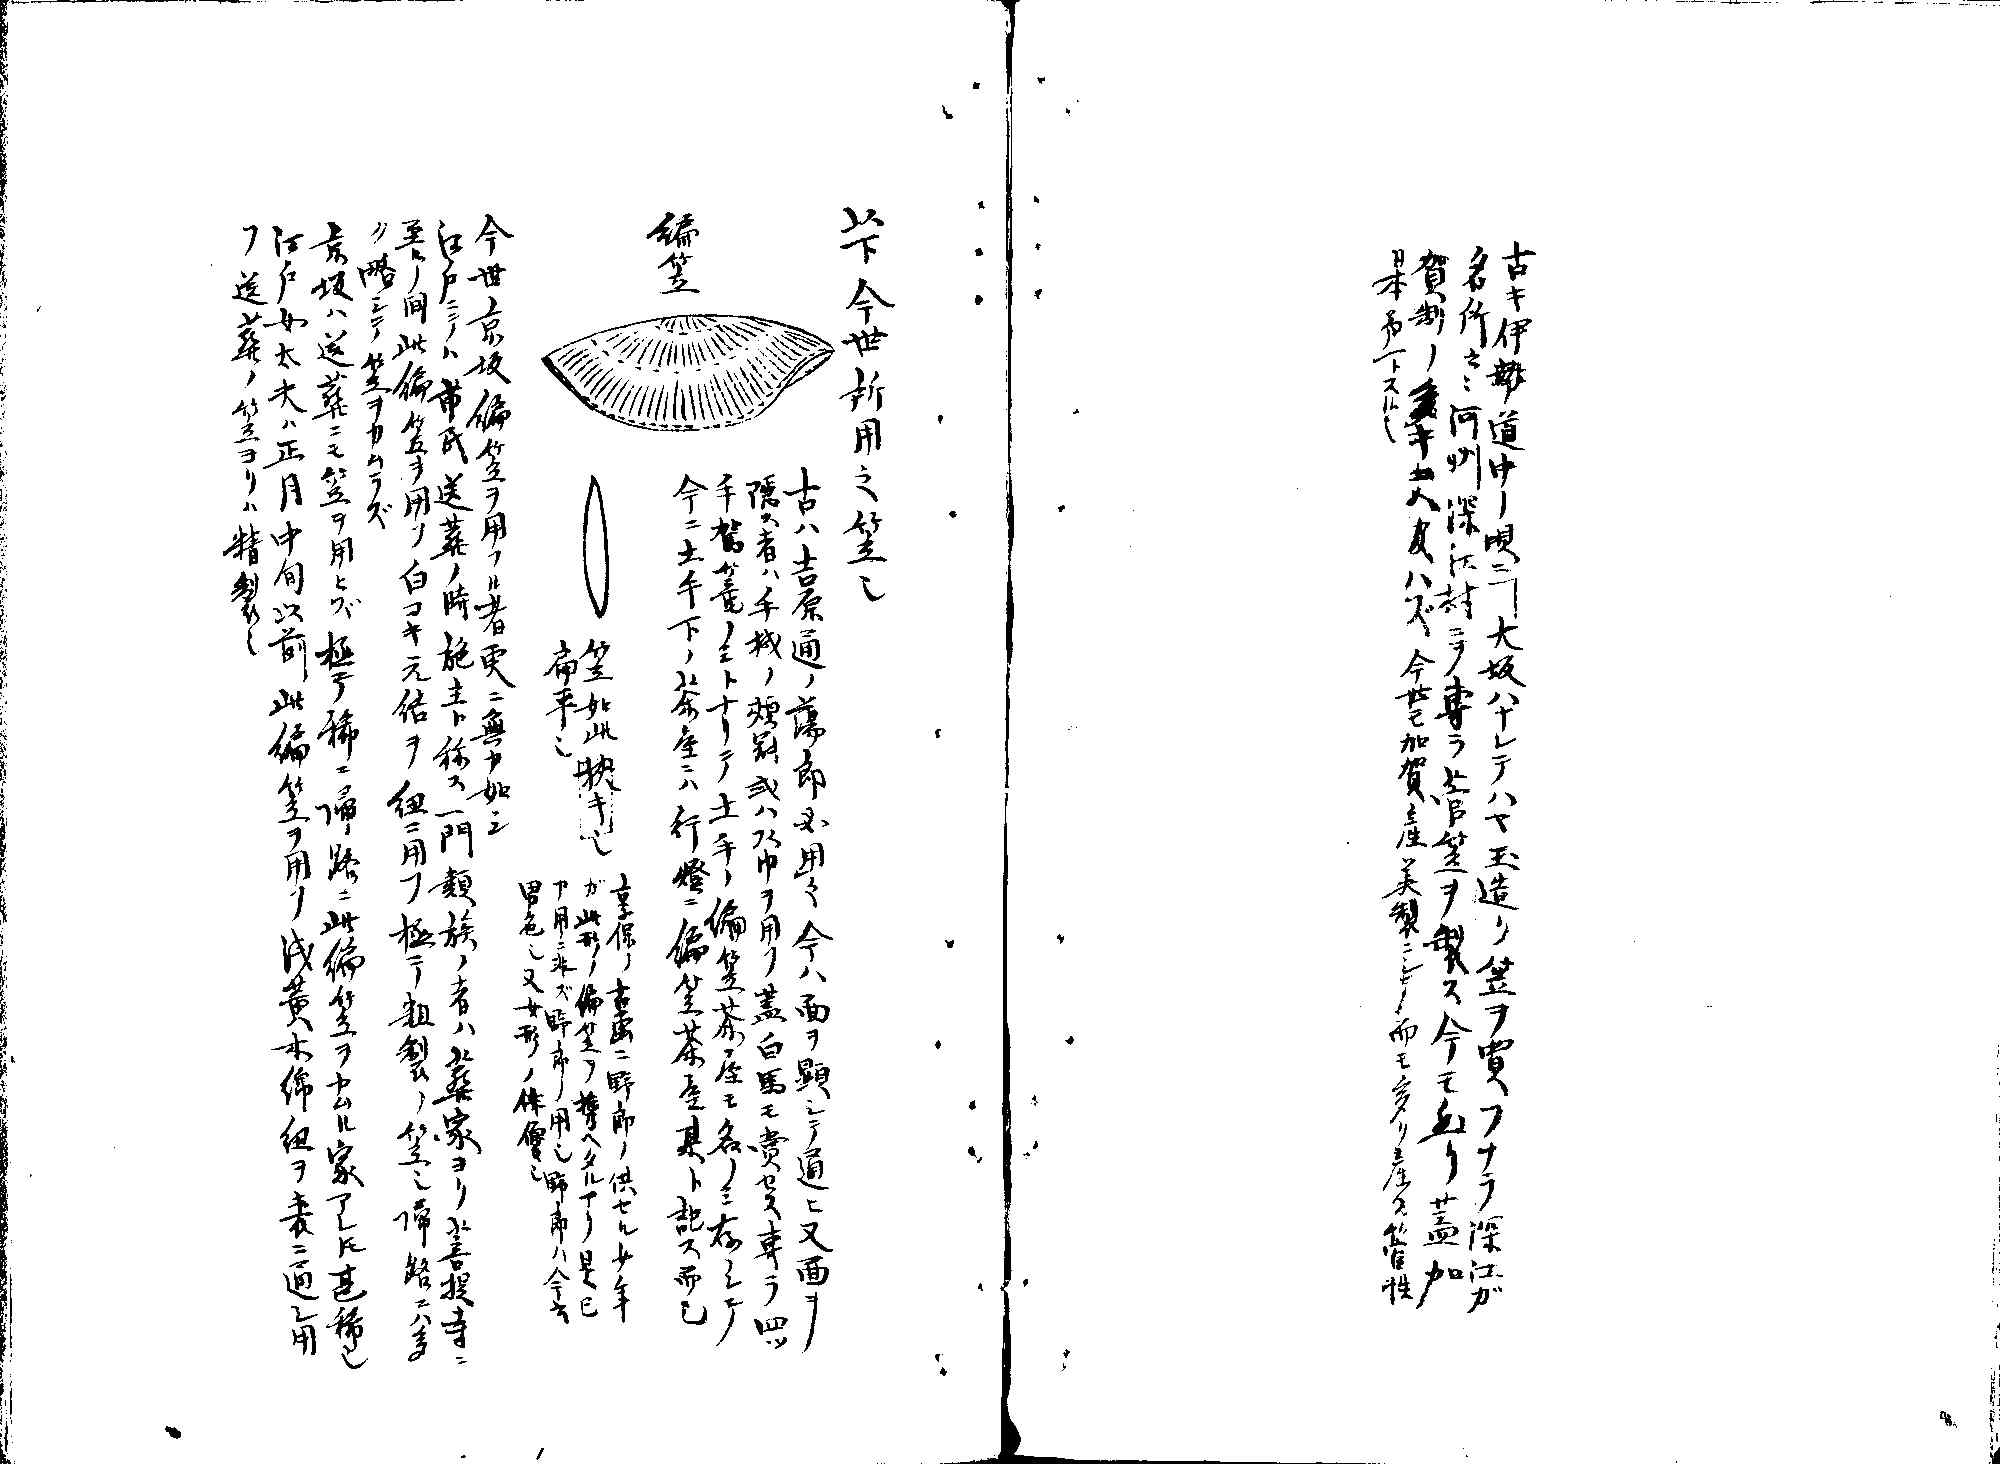 古キ伊勢道中ノ唄ニ 大坂ハナレテハヤ玉造リ笠ヲ買フナラ深江ガ
名所云々河州深江村ニテ専ラ菅笠ヲ製ス今モ然リ蓋加
賀制ノ美キニ及ハズ 今世モ加賀産美製ニシテ而モ多ク産ス菅性
日本第一トスル也
以下今世所用之笠也
編笠
古ハ吉原通ノ蕩郎必用之今ハ面ヲ顕シテ通ヒ又面ヲ
隠ス者ハ手拭ノ頬冠或ハ頭巾ヲ用フ蓋白馬モ賣セズ専ラ四ツ
手駕籠ノミトナリテ土手ノ編笠茶屋モ名ノミ存シテ
今ニ土手下ノ茶屋ニハ行燈ニ編笠茶屋某ト記ス而已
笠如此狭キ也
扁平也
享保ノ古画ニ野郎ノ供セル少年
ガ此形ノ編笠ヲ携ヘタルアリ是己
ガ用ニ非ズ野郎ノ用也野郎ハ今云
男色也又女形ノ俳優也
今世京坂編笠ヲ用フル者更ニ無カ如シ
江戸ニテハ市民送葬ノ時施主ト称ス一門類族ノ者ハ葬家ヨリ菩提寺ニ
至ルノ間此編笠ヲ用フ白コキ元結ヲ紐ニ用フ極テ粗製ノ笠也帰路ニハ多
ク略シテ笠ヲカムラズ
京坂ハ送葬ニモ笠ヲ用ヒズ極テ稀ニ帰路ニ此編笠ヲカムル家アレドモ甚稀也
江戸女太夫ハ正月中旬以前此編笠ヲ用フ浅黄木綿紐ヲ表ニ通シ用
フ送葬ノ笠ヨリハ精製也